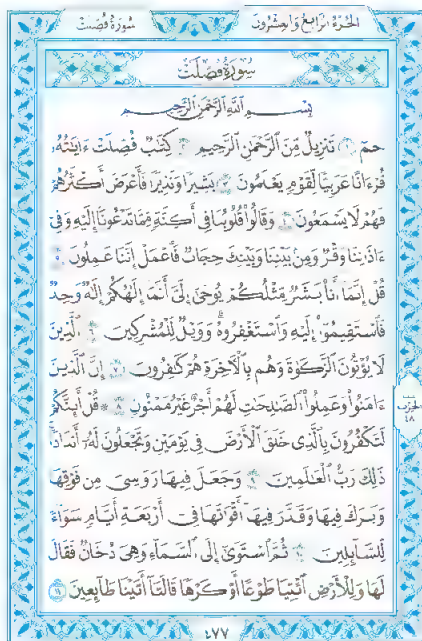 سُورَةُ فُصِّلَتْ الجُزْءُ الرَّابِعُ وَالعِشْرُونَ
سُورَةُ فُصِّلَتْ
بِسْمِ اللَّهِ الرَّحْمَٰنِ الرَّحِيمِ
حمٓ ١ تَنزِيلٌ مِّنَ الرَّحْمَٰنِ الرَّحِيمِ ٢ كِتَٰبٌ فُصِّلَتْ ءَايَٰتُهُۥ
قُرْءَانًا عَرَبِيًّا لِّقَوْمٍ يَعْلَمُونَ ٣ بَشِيرًا وَنَذِيرًا فَأَعْرَضَ أَكْثَرُهُمْ
فَهُمْ لَا يَسْمَعُونَ ٤ وَقَالُوا۟ قُلُوبُنَا فِىٓ أَكِنَّةٍ مِّمَّا تَدْعُونَآ إِلَيْهِ وَفِىٓ
ءَاذَانِنَا وَقْرٌ وَمِنۢ بَيْنِنَا وَبَيْنِكَ حِجَابٌ فَاعْمَلْ إِنَّنَا عَٰمِلُونَ ٥
قُلْ إِنَّمَآ أَنَا۠ بَشَرٌ مِّثْلُكُمْ يُوحَىٰٓ إِلَىَّ أَنَّمَآ إِلَٰهُكُمْ إِلَٰهٌ وَٰحِدٌ
فَاسْتَقِيمُوٓا۟ إِلَيْهِ وَاسْتَغْفِرُوهُ ۗ وَوَيْلٌ لِّلْمُشْرِكِينَ ٦ الَّذِينَ
لَا يُؤْتُونَ الزَّكَوٰةَ وَهُم بِالْءَاخِرَةِ هُمْ كَٰفِرُونَ ٧ إِنَّ الَّذِينَ
ءَامَنُوا۟ وَعَمِلُوا۟ الصَّٰلِحَٰتِ لَهُمْ أَجْرٌ غَيْرُ مَمْنُونٍ ٨ ۞ قُلْ أَئِنَّكُمْ
لَتَكْفُرُونَ بِالَّذِى خَلَقَ الْأَرْضَ فِى يَوْمَيْنِ وَتَجْعَلُونَ لَهُۥٓ أَندَادًا ۚ
ذَٰلِكَ رَبُّ الْعَٰلَمِينَ ٩ وَجَعَلَ فِيهَا رَوَٰسِىَ مِن فَوْقِهَا
وَبَٰرَكَ فِيهَا وَقَدَّرَ فِيهَآ أَقْوَٰتَهَا فِىٓ أَرْبَعَةِ أَيَّامٍ سَوَآءً
لِّلسَّآئِلِينَ ١٠ ثُمَّ اسْتَوَىٰٓ إِلَى السَّمَآءِ وَهِىَ دُخَانٌ فَقَالَ
لَهَا وَلِلْأَرْضِ ائْتِيَا طَوْعًا أَوْ كَرْهًا قَالَتَآ أَتَيْنَا طَآئِعِينَ ١١
الحزب
٤٨
٤٧٧